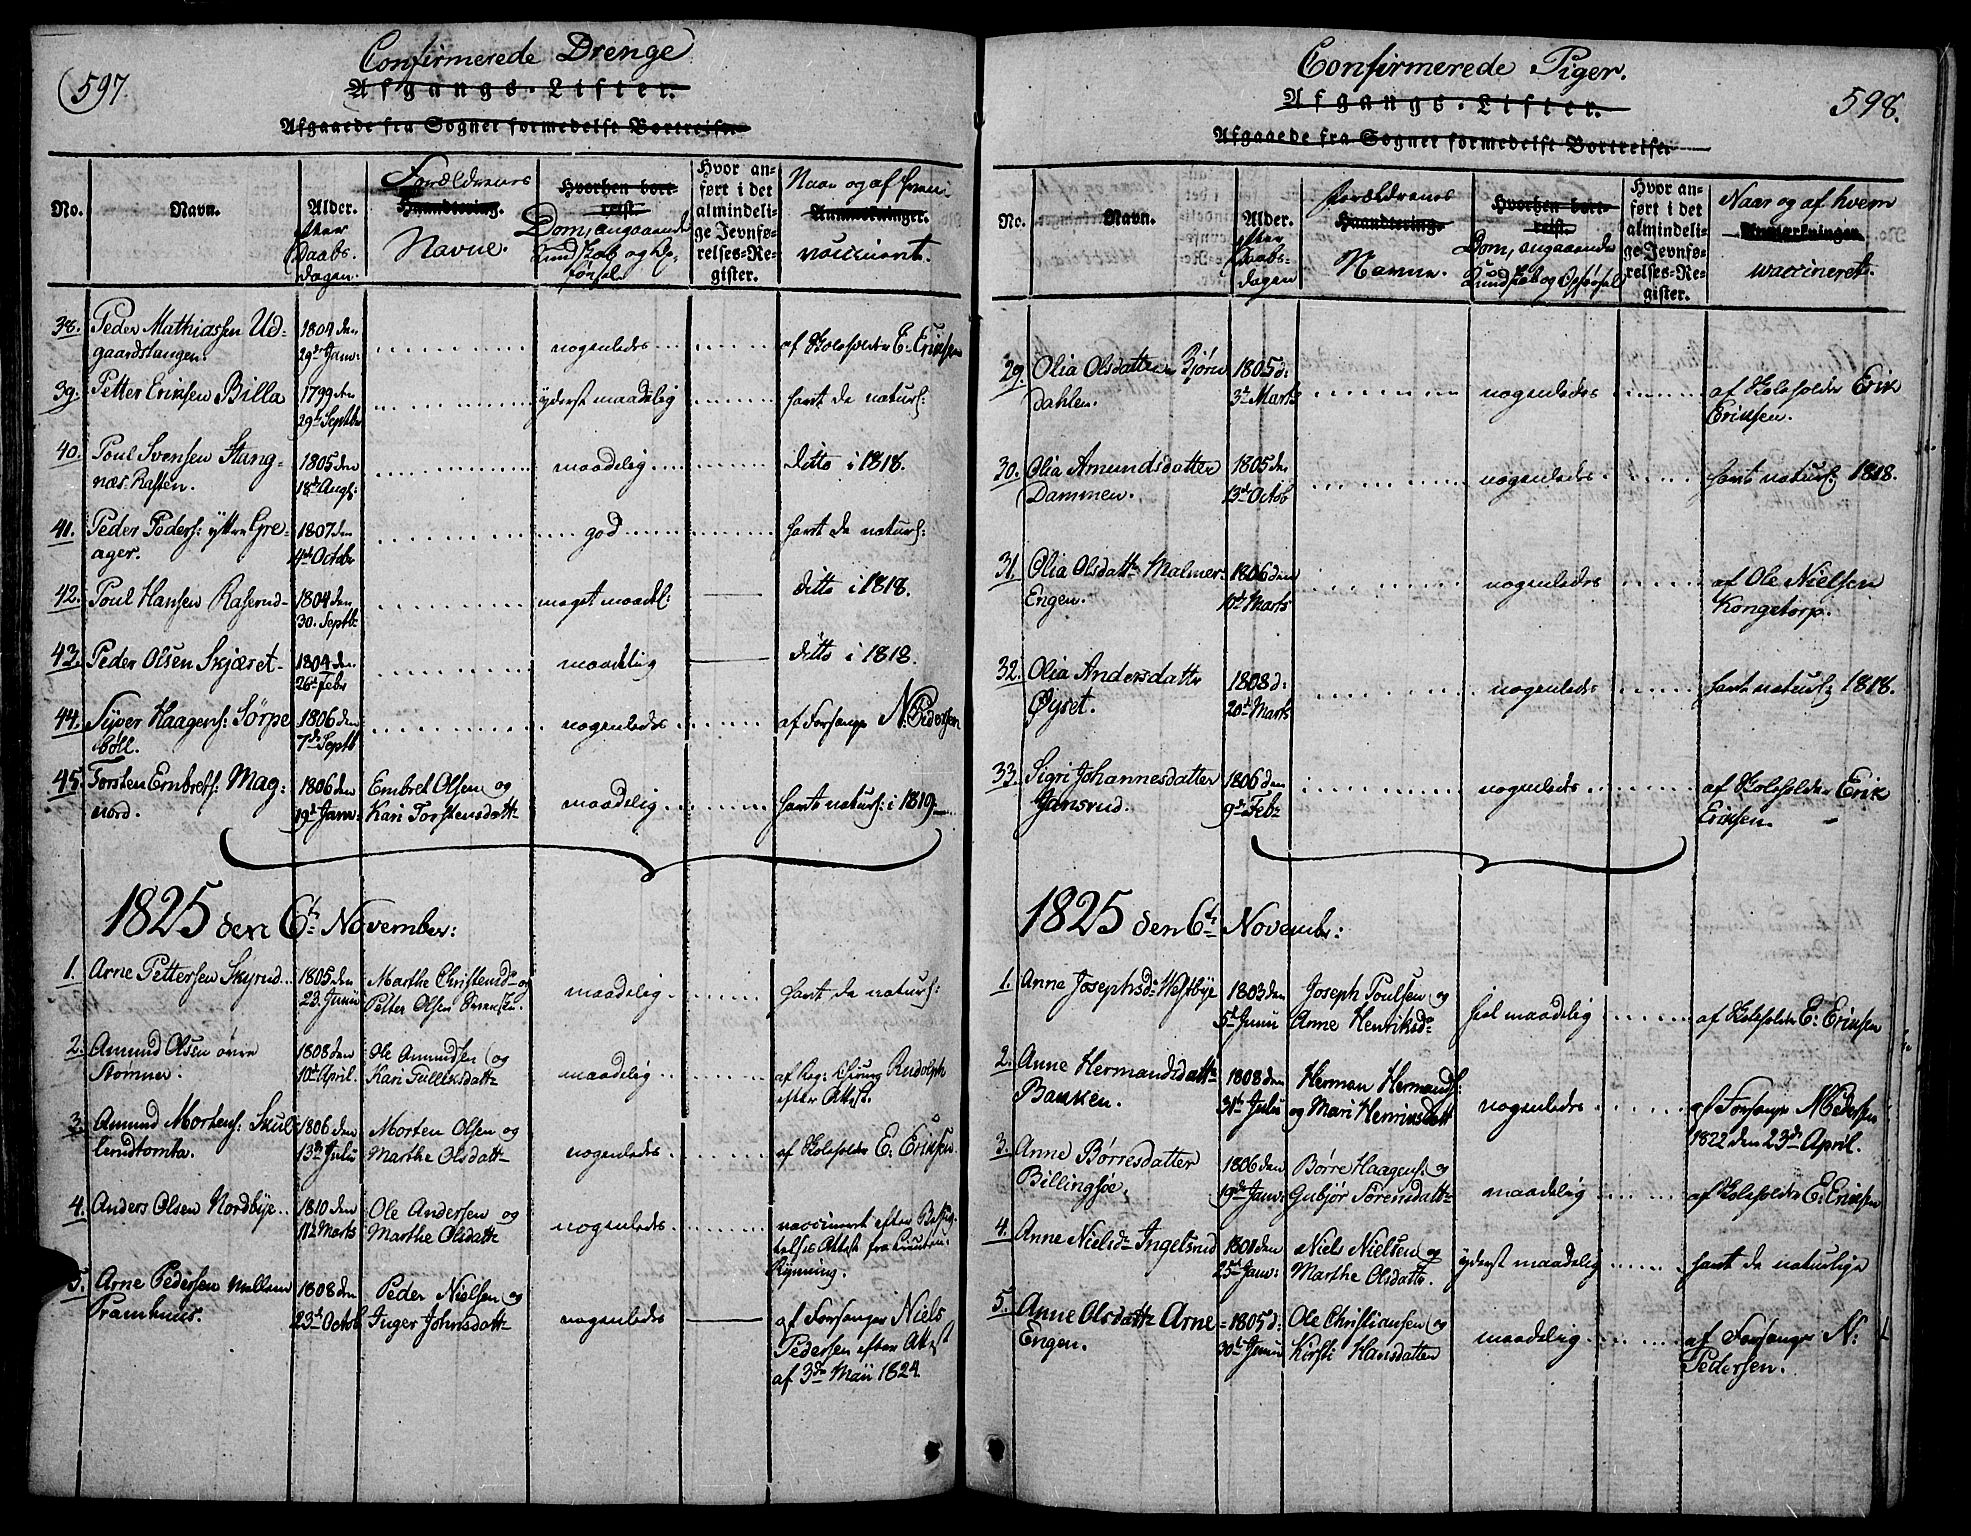 597.
Confirmerede Drenge
Afgangs-Lister.
Afgaaede fra Sognet formedelst Bortreise.
No.
Navn.
Alder.
efter
Daabs-
dagen.
Forældrenes
Haandtering.
Navne.
Hvorhen bort-
reist.
Dom, angaaende
Kundskab og Op-
førsel
Hvor an-
ført i det
almindeli-
ge Jevnfø-
relses-Re-
gister.
Naar og af hvem
Anmærkninger.
vaccineret.
38. Peder Mathiassen Ud-
gaardstangen.
1804 den
29de Janv:
nogenledes
af Kolaholder E. Eriksen
39. Petter Eriksen Billa
1799 den
29de Septbr
yderst maadelig
havt de naturl:
40. Poul Svensen Stang-
næs-Kasten.
1805 den
18de Augs:
maadelig
ditto i 1818.
41. Peder Peders: yttre Gre-
ager.
1807 den
4de Octobr
god
havt de naturl:
42. Poul Hansen Raserud
1804 den
30. Septbr
meget maadel:
ditto i 1818.
43. Peder Olsen Skjæret
1804 den
26de Febr
maadelig
ditto i 1818.
44. Syver Haagens: Sørpe
bøll.
1806 den
7de Septbr
nogenledes
af Forsanger N. Pedersen
45. Torsten Embrets: Mag-
nord.
1806 den
19de Janv:
Embret Olsen og
Kari Torstensdattr
maadelig
havt naturl: i 1819
1825 den 6te November:
1. Arne Pettersen Skyrud
1805 den
23. Junii
Marthe Christensdr og
Petter Olsen
maadelig
havt de naturl:
2. Amund Olsen øvre
Stomner.
1808 den
10de April.
Ole Amundsen og
Kari Tulliksdattr
maadelig
af Reg: Chirurg Rudolph
efter Attest.
3. Amund Mortens: Skul-
lerudtomta.
1806 den
13de Julii
Morten Olsen og
Marthe Olsdattr
nogenledes
af Kolaholder E. Eriksen
4. Anders Olsen Nordbye
1810 den
112 Marts
Ole Andersen og
Marthe Olsdattr
nogenledes
vaccineret efter Besig-
telses Attest fra
Rynning.
5. Arne Pedersen mellem
Pramhuus.
1808 den
23de Octob
Peder Nielsen og
Inger Johnsdattr
nogenledes
af Forsanger Niels
Pedersen efter Attest
af 3de Maii 1824
Confirmerede Piger.
598.
Afgangs-Lister.
Afgaaede fra Sognet formedelst Bortreise.
No.
Navn.
Alder.
efter
Daabs-
dagen
Forældrenes
Haandtering.
Navne.
Hvorhen bort-
reist.
Dom, angaaende
Kundskab og Opførsel
Hvor an-
ført i det
almindeli-
ge Jevnfø-
relses-Re-
gister.
Naar og af hvem
Anmærkninger.
vaccineret.
29. Olia Olsdatter Bjørn
dahlen.
1805 d:
3de Marts
nogenledes
af Kolaholder Erik
Eriksen.
30. Olia Amundsdatter
Dammen.
1805 den
13de Octob
nogenledes
havt naturl: 1818.
31. Olia Olsdattr Malmer-
Engen.
1806 den
10de Marts
nogenledes
af Ole Nielsen
Kongetorp.
32. Olia Andersdatter
Øyset.
1808 d:
20de Marts
nogenledes
havt naturl: 1818.
33. Sigri Johannesdatter
Jansrud.
1806 den
9de Febr
nogenledes
af Kolaholder Erik
Eriksen.
1825 den 6te Novembr:
1. Anne Josephsdr Westbye
1803 den
5te Junii
Joseph Poulsen og
Anne Henriksdr
heel maadelig
af Kolaholder E. Eriksen
2. Anne Hermandsdattr
Bakken.
1808 den
31te Julii
Herman Hermands:
og Mari Henriksdatt
nogenledes
af Forsanger N Pedersen
1822 den 23de April.
3. Anne Børresdatter
Billingsøe.
1806 den
19de Janv:
Børre Haagens: og
Gubjør Sørensdattr
maadelig
af Kolaholder E. Eriksen
4. Anne Nielsdr Ingelsrud
1801 den
25de Janv:
Niels Nielsen og
Marthe Olsdattr.
yderst maadelig
havt de naturlige
5. Anne Olsdattr Arne-
Engen.
1805 d:
30te Junii
Ole Christiansen og
Kirsti Hansdatter
maadelig
af Forsanger N:
Pedersen.